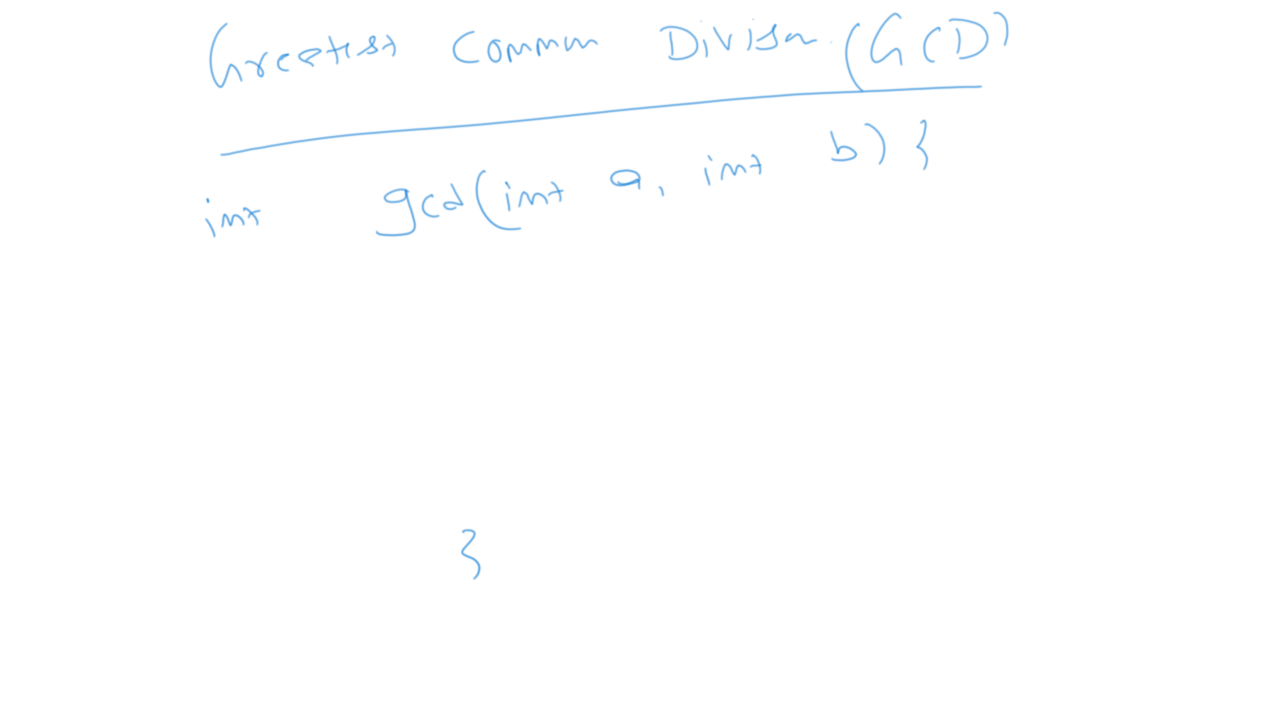 Greatest Common Divisor (GCD)
int gcd(int a, int b) {
}